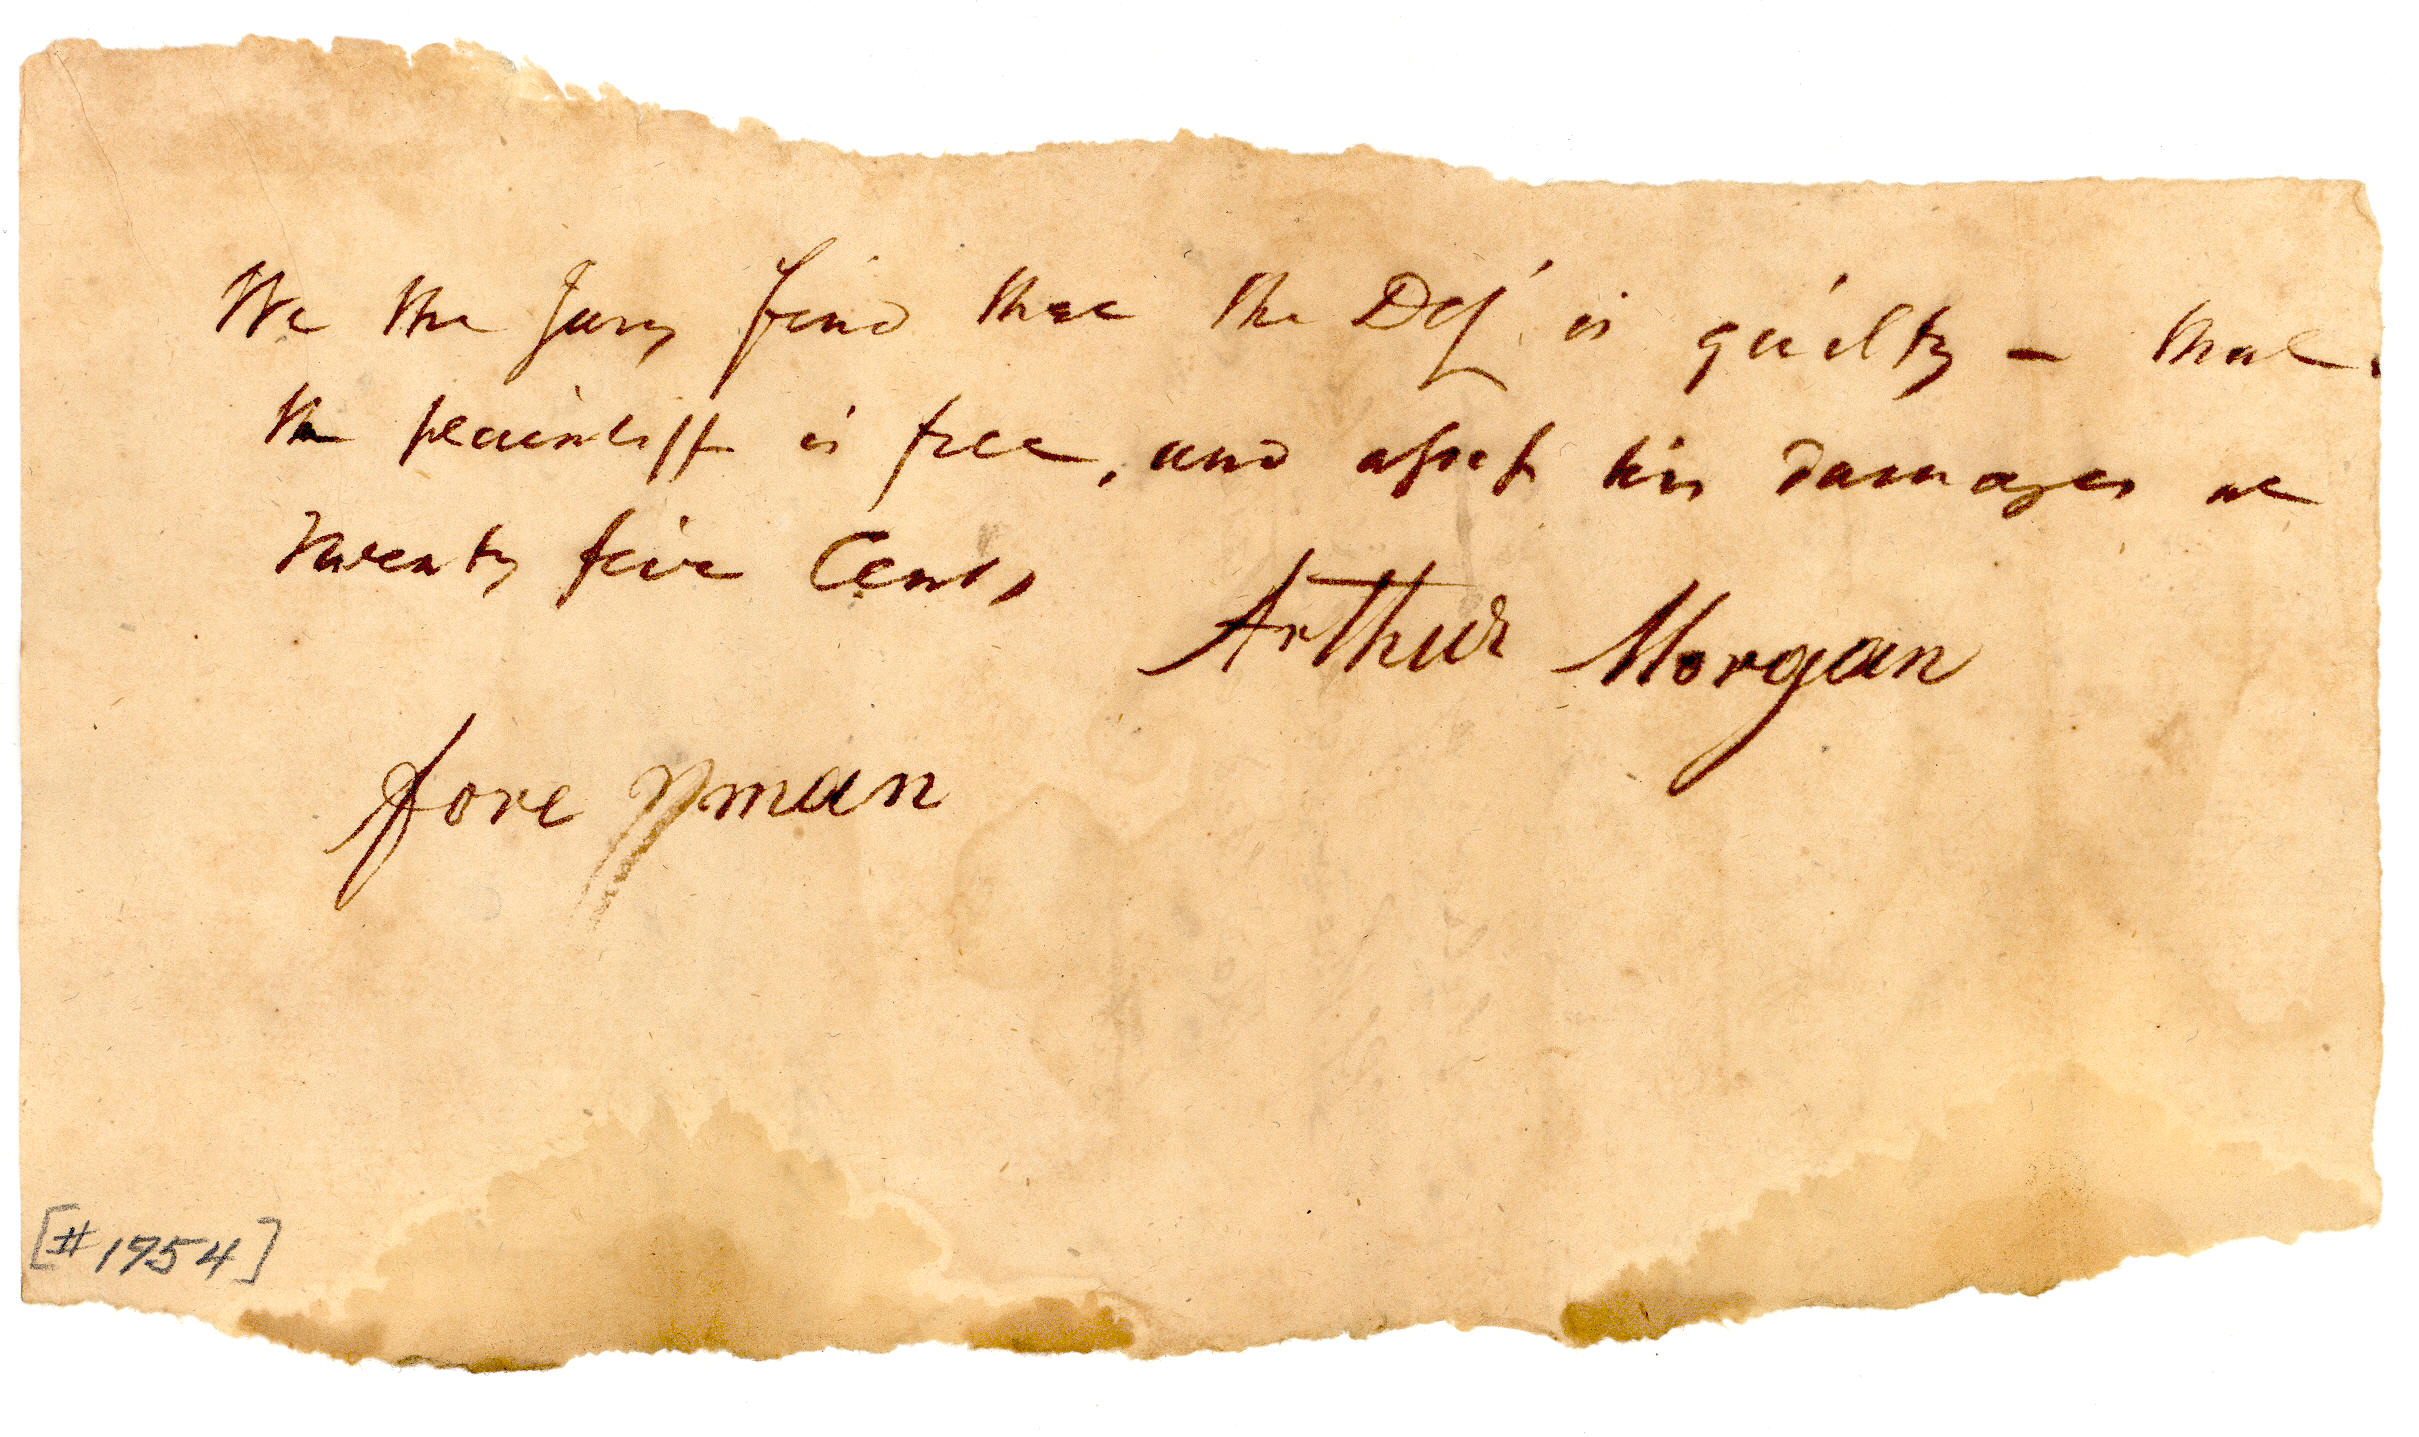 We the Jury find that the Def' is guilty – that
the plaintiff is free, and assess his damages at
Twenty five Cents
Arthur Morgan
fore man
[#1754]